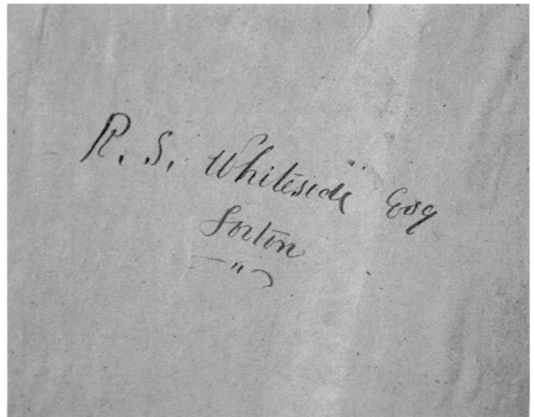 R. S. Whiteside Esq
Forton
"